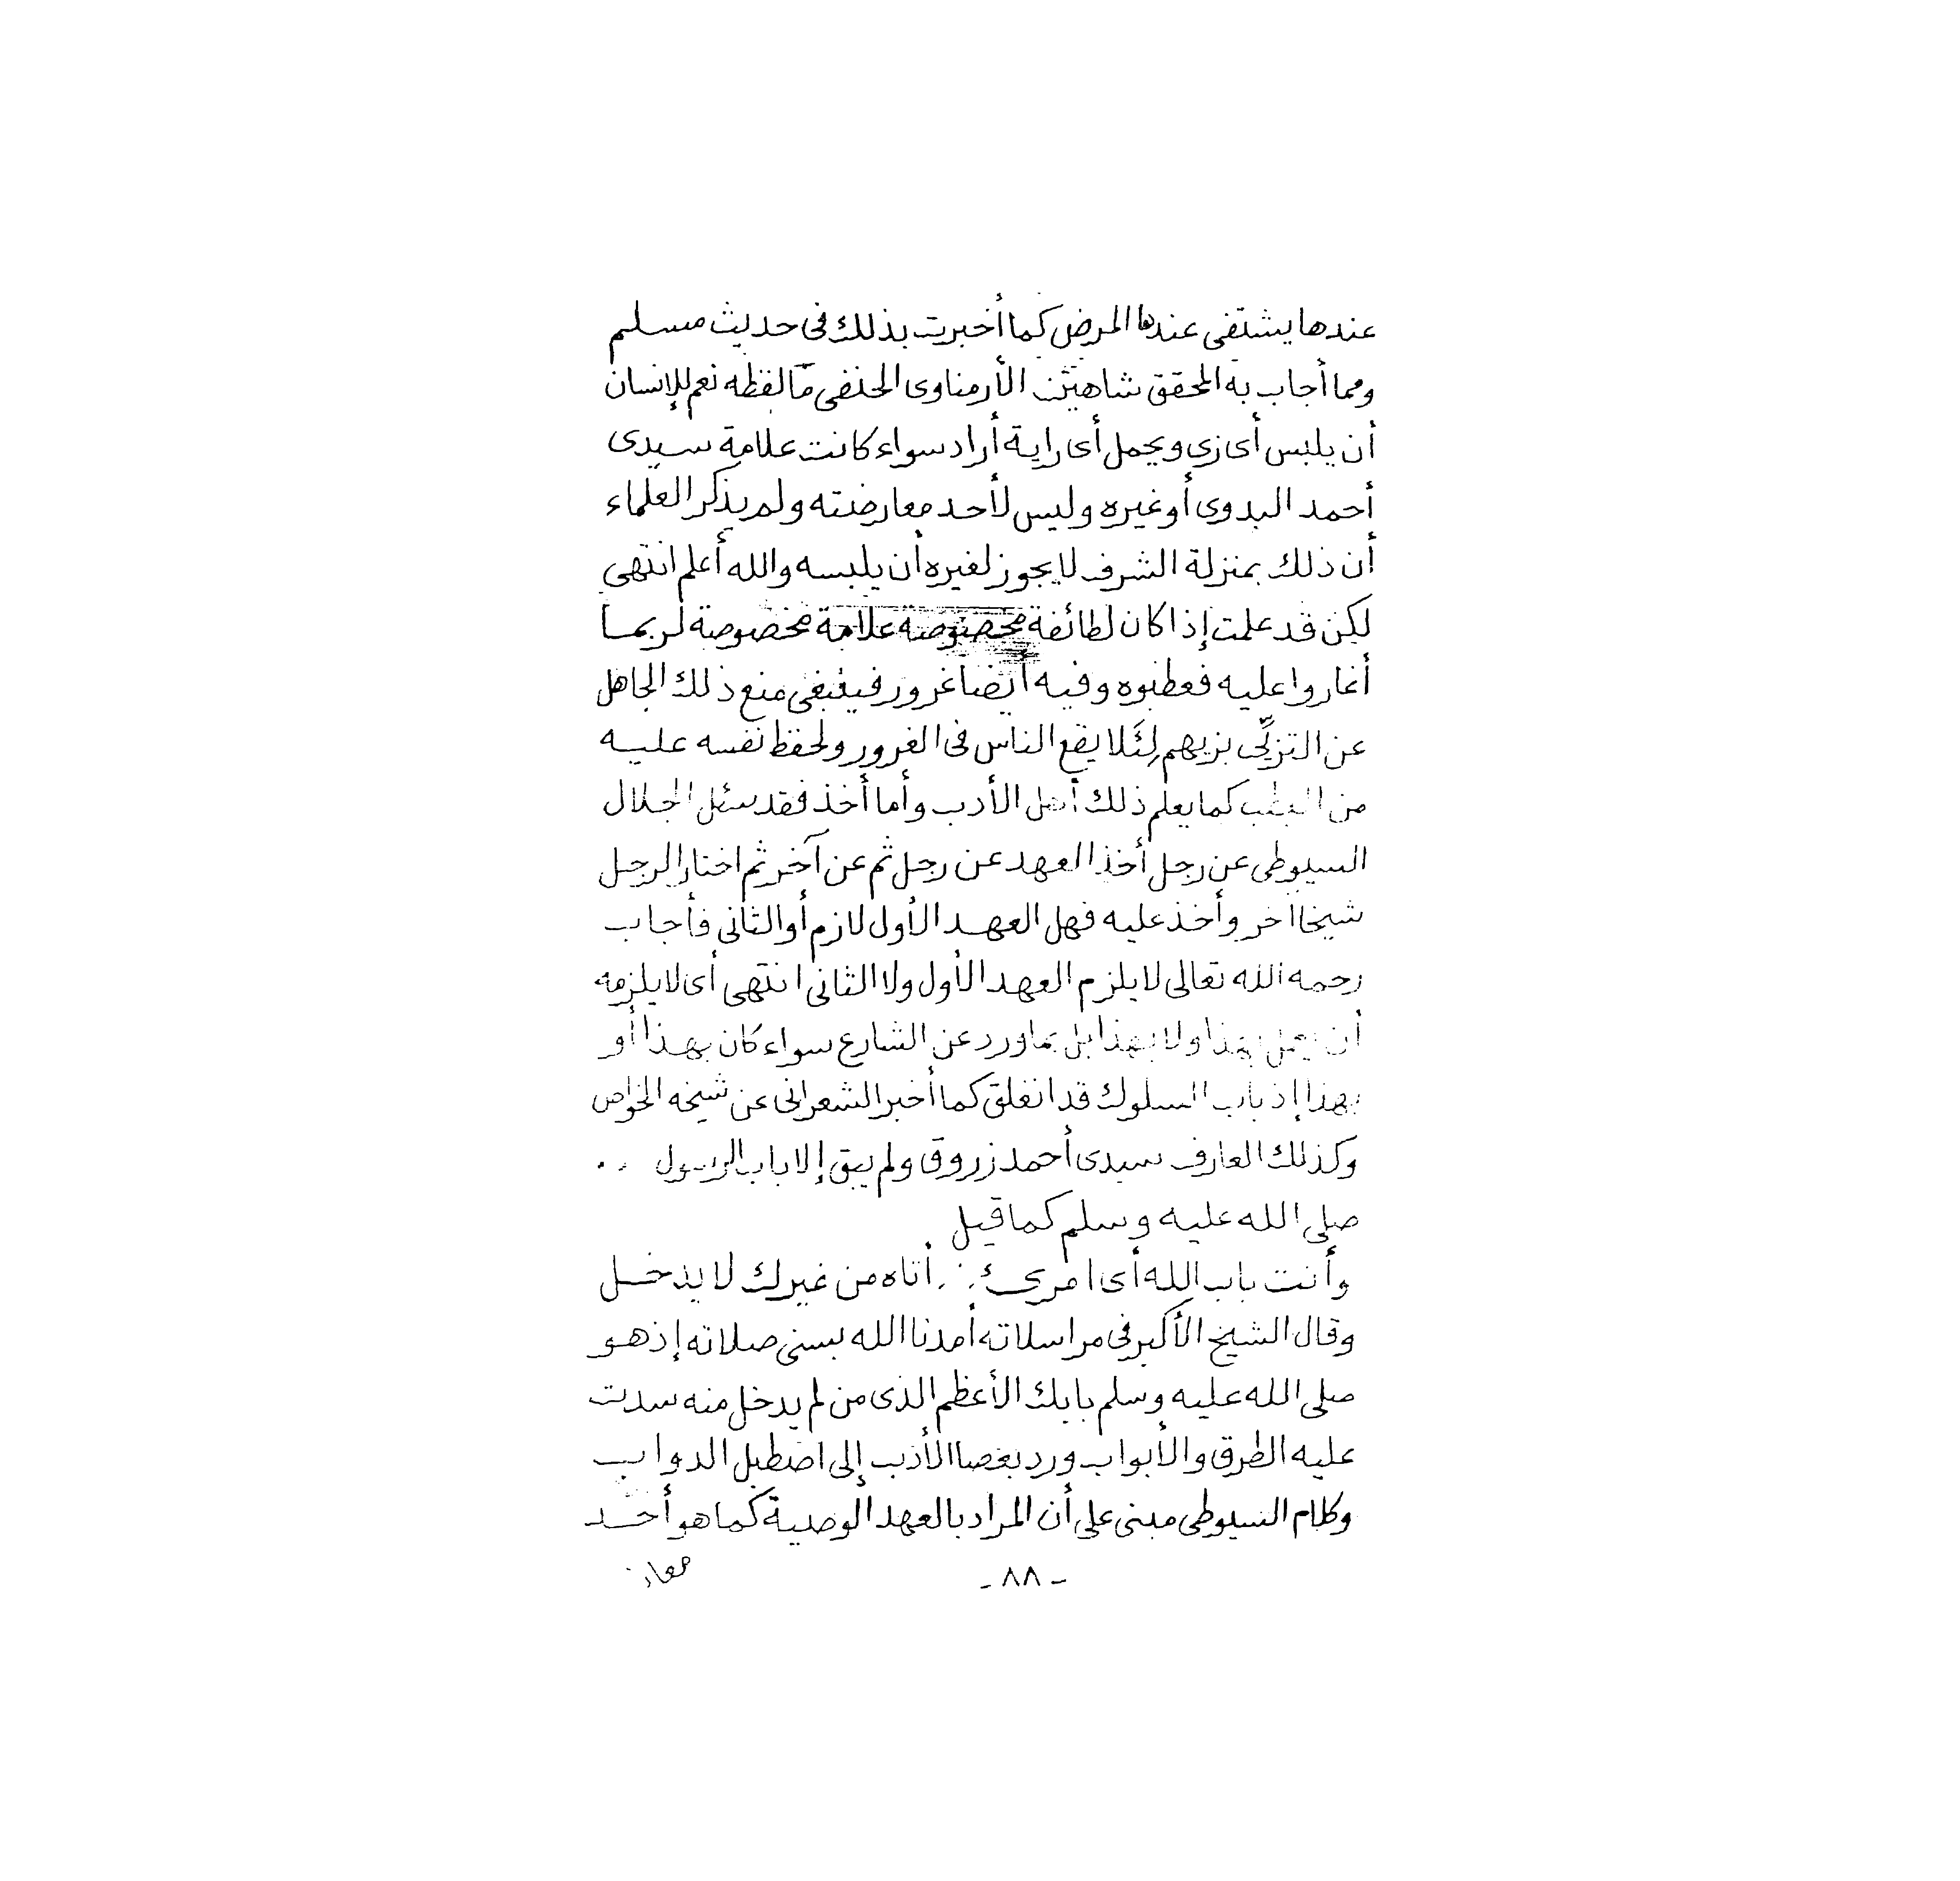 عندها يشتفى عندها المرض كما أخبرت بذلك فى حديث مسلم
ومما أجاب به المحقق شاهين الأرمناوى الحنفى مّا لفظه نعم للإنسان
أن يلبس أى زى ويحمل أى راية أراد سواء كانت علامة سيدى
أحمد البدوى أو غيره وليس لأحد معارضته ولم يذكر العلماء
أن ذلك بمنزلة الشرف لا يجوز لغيره أن يلبسه والله أعلم انتهى
لكن قد علمت إذا كان لطائفة مخصوصة علامة مخصوصة لربما
أغاروا عليه فعطبوه وفيه أيضا غرور فينبغى منع ذلك الجاهل
عن التزيِّى بزيهم لِئَلا يقع الناس فى الغرور ولحفظ نفسه عليه
من العطب كما يعلم ذلك أهل الأدب وأما أخذ فقد سئل الجلال
السيوطى عن رجل أخذ العهد عن رجل ثم عن آخر ثم اختار الرجل
شيخا آخر وأخذ عليه فهل العهد الأول لازم أو الثانى فأجاب
رحمه الله تعالى لا يلزم العهد الأول ولا الثانى انتهى أى لا يلزمه
أن يعمل بهذا ولا بهذا بل بما ورد عن الشارع سواء كان بهذا أو
بهذا إذ باب السلوك قد انغلق كما أخبر الشعرانى عن شيخه الخواص
وكذلك العارف سيدى أحمد زروق ولم يبق إلا باب الرسول
صلى الله عليه وسلم كما قيل
وأنت باب الله أى امرئ ∴ أتاه من غيرك لا يدخل
وقال الشيخ الأكبر فى مراسلاته أمدنا الله بسنى صلاته إذ هو
صلى الله عليه وسلم بابك الأعظم الذى من لم يدخل منه سدت
عليه الطرق والأبواب ورد بعصا الأدب إلى اصطبل الدواب
وكلام السيوطى مبنى على أن المراد بالعهد الوصية كما هو أحد
- ٨٨ -